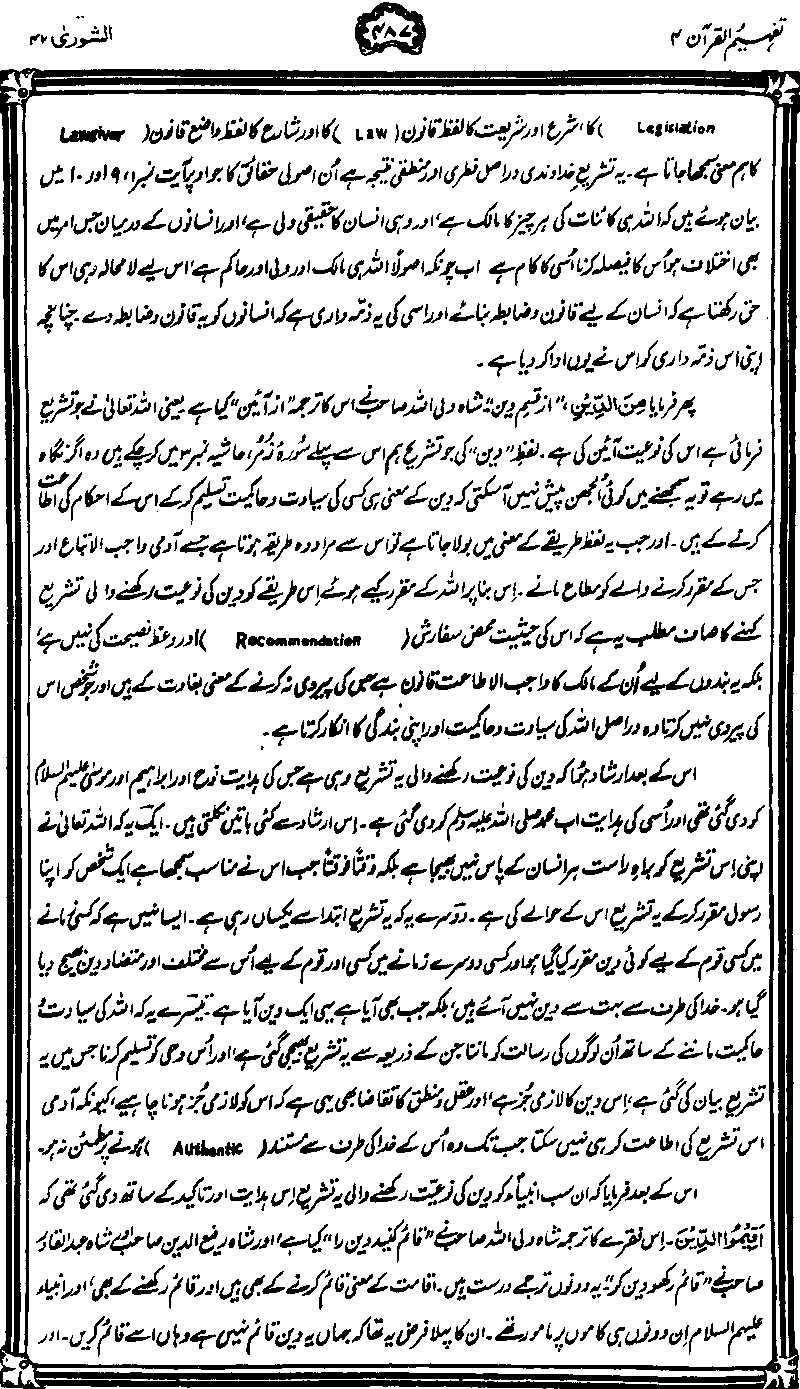 تفہیم القرآن ۴
۴۸۷
الشوریٰ ۴۲
Legislation )کا، شرع اور شریعت کا لفظ قانون( Law )کا اور شارع کا لفظ واضع قانون( Lawgiver
کا ہم معنی سمجھا جاتا ہے۔ یہ تشریع خداوندی دراصل فطری اور منطقی نتیجہ ہے اُن اصولی حقائق کا جو اوپر آیت نمبر ۱، ۹ اور ۱۰ میں
بیان ہوئے ہیں کہ اللہ ہی کائنات کی ہر چیز کا مالک ہے، اور وہی انسان کا حقیقی ولی ہے، اور انسانوں کے درمیان جس امر میں
بھی اختلاف ہو اُس کا فیصلہ کرنا اُسی کا کام ہے۔ اب چونکہ اصولًا اللہ ہی مالک اور ولی اور حاکم ہے، اس لیے لامحالہ وہی اس کا
حق رکھتا ہے کہ انسان کے لیے قانون و ضابطہ بنائے اور اسی کی یہ ذمّہ داری ہے کہ انسانوں کو یہ قانون و ضابطہ دے۔ چنانچہ
اپنی اس ذمّہ داری کو اس نے یوں ادا کر دیا ہے۔
پھر فرمایا مِنَ الدِّیْنِ، "از قسم دین"۔ شاہ ولی اللہ صاحبؒ نے اس کا ترجمہ "از آئین" کیا ہے۔ یعنی اللہ تعالیٰ نے جو تشریع
فرمائی ہے اس کی نوعیت آئین کی ہے۔ لفظ "دین" کی جو تشریح ہم اس سے پہلے سورۂ زُمَر، حاشیہ نمبر ۳ میں کر چکے ہیں وہ اگر نگاہ
میں رہے تو یہ سمجھنے میں کوئی اُلجھن پیش نہیں آ سکتی کہ دین کے معنی ہی کسی کی سیادت و حاکمیت تسلیم کر کے اس کے احکام کی اطاعت
کرنے کے ہیں۔ اور جب یہ لفظ طریقے کے معنی میں بولا جاتا ہے تو اس سے مراد وہ طریقہ ہوتا ہے جسے آدمی واجب الاتباع اور
جس کے مقرر کرنے والے کو مطاع مانے۔ اس بنا پر اللہ کے مقرر کیے ہوئے اِس طریقے کو دین کی نوعیت رکھنے والی تشریع
کہنے کا صاف مطلب یہ ہے کہ اس کی حیثیت محض سفارش( Recommendation )اور وعظ و نصیحت کی نہیں ہے،
بلکہ یہ بندوں کے لیے اُن کے مالک کا واجب الاطاعت قانون ہے جس کی پیروی نہ کرنے کے معنی بغاوت کے ہیں اور جو شخص اس
کی پیروی نہیں کرتا وہ دراصل اللہ کی سیادت و حاکمیت اور اپنی بندگی کا انکار کرتا ہے۔
اس کے بعد ارشاد ہُوا کہ دین کی نوعیت رکھنے والی یہ تشریع وہی ہے جس کی ہدایت نوحؑ اور ابراہیم اور موسیٰ علیہم السلام
کو دی گئی تھی اور اُسی کی ہدایت اب محمد صلی اللہ علیہ وسلم کو دی گئی ہے۔ اِس ارشاد سے کئی باتیں نکلتی ہیں۔ ایک یہ کہ اللہ تعالیٰ نے
اپنی اِس تشریع کو براہِ راست ہر انسان کے پاس نہیں بھیجا ہے بلکہ وقتًا فوقتًا جب اس نے مناسب سمجھا ہے ایک شخص کو اپنا
رسول مقرر کر کے یہ تشریع اس کے حوالے کی ہے۔ دوسرے یہ کہ یہ تشریع ابتدا سے یکساں رہی ہے۔ ایسا نہیں ہے کہ کسی زمانے
میں کسی قوم کے لیے کوئی دین مقرر کیا گیا ہو اور کسی دوسرے زمانے میں کسی اور قوم کے لیے اُس سے مختلف اور متضاد دین بھیج دیا
گیا ہو۔ خدا کی طرف سے بہت سے دین نہیں آئے ہیں، بلکہ جب بھی آیا ہے یہی ایک دین آیا ہے۔ تیسرے یہ کہ اللہ کی سیادت و
حاکمیت ماننے کے ساتھ اُن لوگوں کی رسالت کو ماننا جن کے ذریعہ سے یہ تشریع بھیجی گئی ہے، اور اُس وحی کو تسلیم کرنا جس میں یہ
تشریع بیان کی گئی ہے، اِس دین کا لازمی جُز ہے، اور عقل و منطق کا تقاضا بھی یہی ہے کہ اس کو لازمی جُز ہونا چاہیے، کیونکہ آدمی
اس تشریع کی اطاعت کر ہی نہیں سکتا جب تک وہ اُس کے خدا کی طرف سے مستند( Authentic )ہونے پر مطمئن نہ ہو۔
اس کے بعد فرمایا کہ ان سب انبیاءؑ کو دین کی نوعیّت رکھنے والی یہ تشریع اِس ہدایت اور تاکید کے ساتھ دی گئی تھی کہ
اَقِیْمُوا الدِّیْنَ۔ اِس فقرے کا ترجمہ شاہ ولی اللہ صاحبؒ نے "قائم کنید دین را" کیا ہے، اور شاہ رفیع الدین صاحبؒ و شاہ عبدالقادر
صاحبؒ نے "قائم رکھو دین کو"۔ یہ دونوں ترجمے درست ہیں۔ اقامت کے معنی قائم کرنے کے بھی ہیں اور قائم رکھنے کے بھی، اور انبیاء
علیہم السلام اِن دونوں ہی کاموں پر مامور تھے۔ ان کا پہلا فرض یہ تھا کہ جہاں یہ دین قائم نہیں ہے وہاں اسے قائم کریں۔ اور